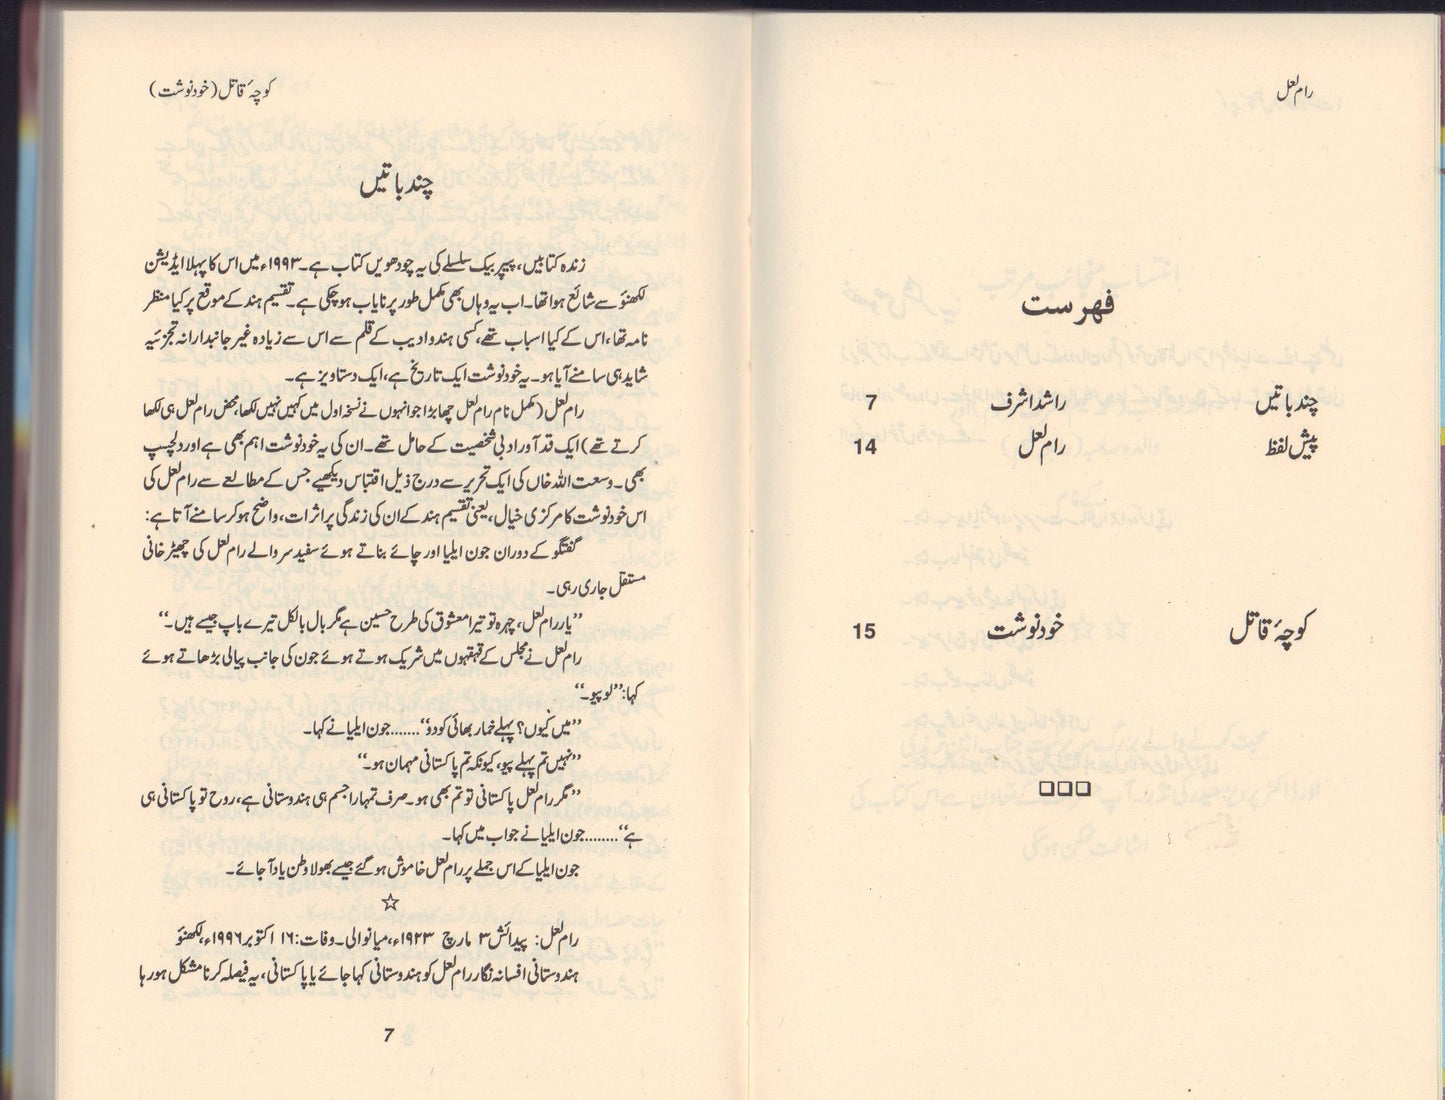 رام لعل
فہرست
چند باتیں راشد اشرف 7
پیش لفظ رام لعل 14
کوچۂ قاتل خودنوشت 15
کوچۂ قاتل (خودنوشت)
چند باتیں
زندہ کتابیں، پیپر بیک سلسلے کی یہ چودھویں کتاب ہے۔ ۱۹۹۳ء میں اس کا پہلا ایڈیشن
لکھنؤ سے شائع ہوا تھا۔ اب یہ وہاں بھی مکمل طور پر نایاب ہو چکی ہے۔ تقسیم ہند کے موقع پر کیا منظر
نامہ تھا، اس کے کیا اسباب تھے، کسی ہندو ادیب کے قلم سے اس سے زیادہ غیر جانبدارانہ تجزئیہ
شاید ہی سامنے آیا ہو۔ یہ خودنوشت ایک تاریخ ہے، ایک دستاویز ہے۔
رام لعل (مکمل نام رام لعل چھابڑا جو انہوں نے نسخہ اول میں کہیں نہیں لکھا، محض رام لعل ہی لکھا
کرتے تھے) ایک قد آور ادبی شخصیت کے حامل تھے۔ ان کی یہ خودنوشت اہم بھی ہے اور دلچسپ
بھی۔ وسعت اللہ خاں کی ایک تحریر سے درج ذیل اقتباس دیکھیے جس کے مطالعے سے رام لعل کی
اس خودنوشت کا مرکزی خیال، یعنی تقسیم ہند کے ان کی زندگی پر اثرات، واضح ہو کر سامنے آتا ہے:
گفتگو کے دوران جون ایلیا اور چائے بناتے ہوئے سفید سر والے رام لعل کی چھیڑ خانی
مستقل جاری رہی۔
’’یار رام لعل، چہرہ تو تیرا معشوق کی طرح حسین ہے مگر بال بالکل تیرے باپ جیسے ہیں۔‘‘
رام لعل نے مجلس کے قہقہوں میں شریک ہوتے ہوئے جون کی جانب پیالی بڑھاتے ہوئے
کہا: ’’لو پیو۔‘‘
’’میں کیوں؟ پہلے خمار بھائی کو دو‘‘.......جون ایلیا نے کہا۔
’’نہیں تم پہلے پیو، کیونکہ تم پاکستانی مہمان ہو۔‘‘
’’مگر رام لعل پاکستانی تو تم بھی ہو۔ صرف تمہارا جسم ہی ہندوستانی ہے، روح تو پاکستانی ہی
ہے‘‘........جون ایلیا نے جواب میں کہا۔
جون ایلیا کے اس جملے پر رام لعل خاموش ہو گئے جیسے بھولا وطن یاد آ جائے۔
☆
رام لعل: پیدائش ۳ مارچ ۱۹۲۳ء، میانوالی۔ وفات: ۱۶ اکتوبر ۱۹۹۶ء، لکھنؤ
ہندوستانی افسانہ نگار رام لعل کو ہندوستانی کہا جائے یا پاکستانی، یہ فیصلہ کرنا مشکل ہو رہا
7